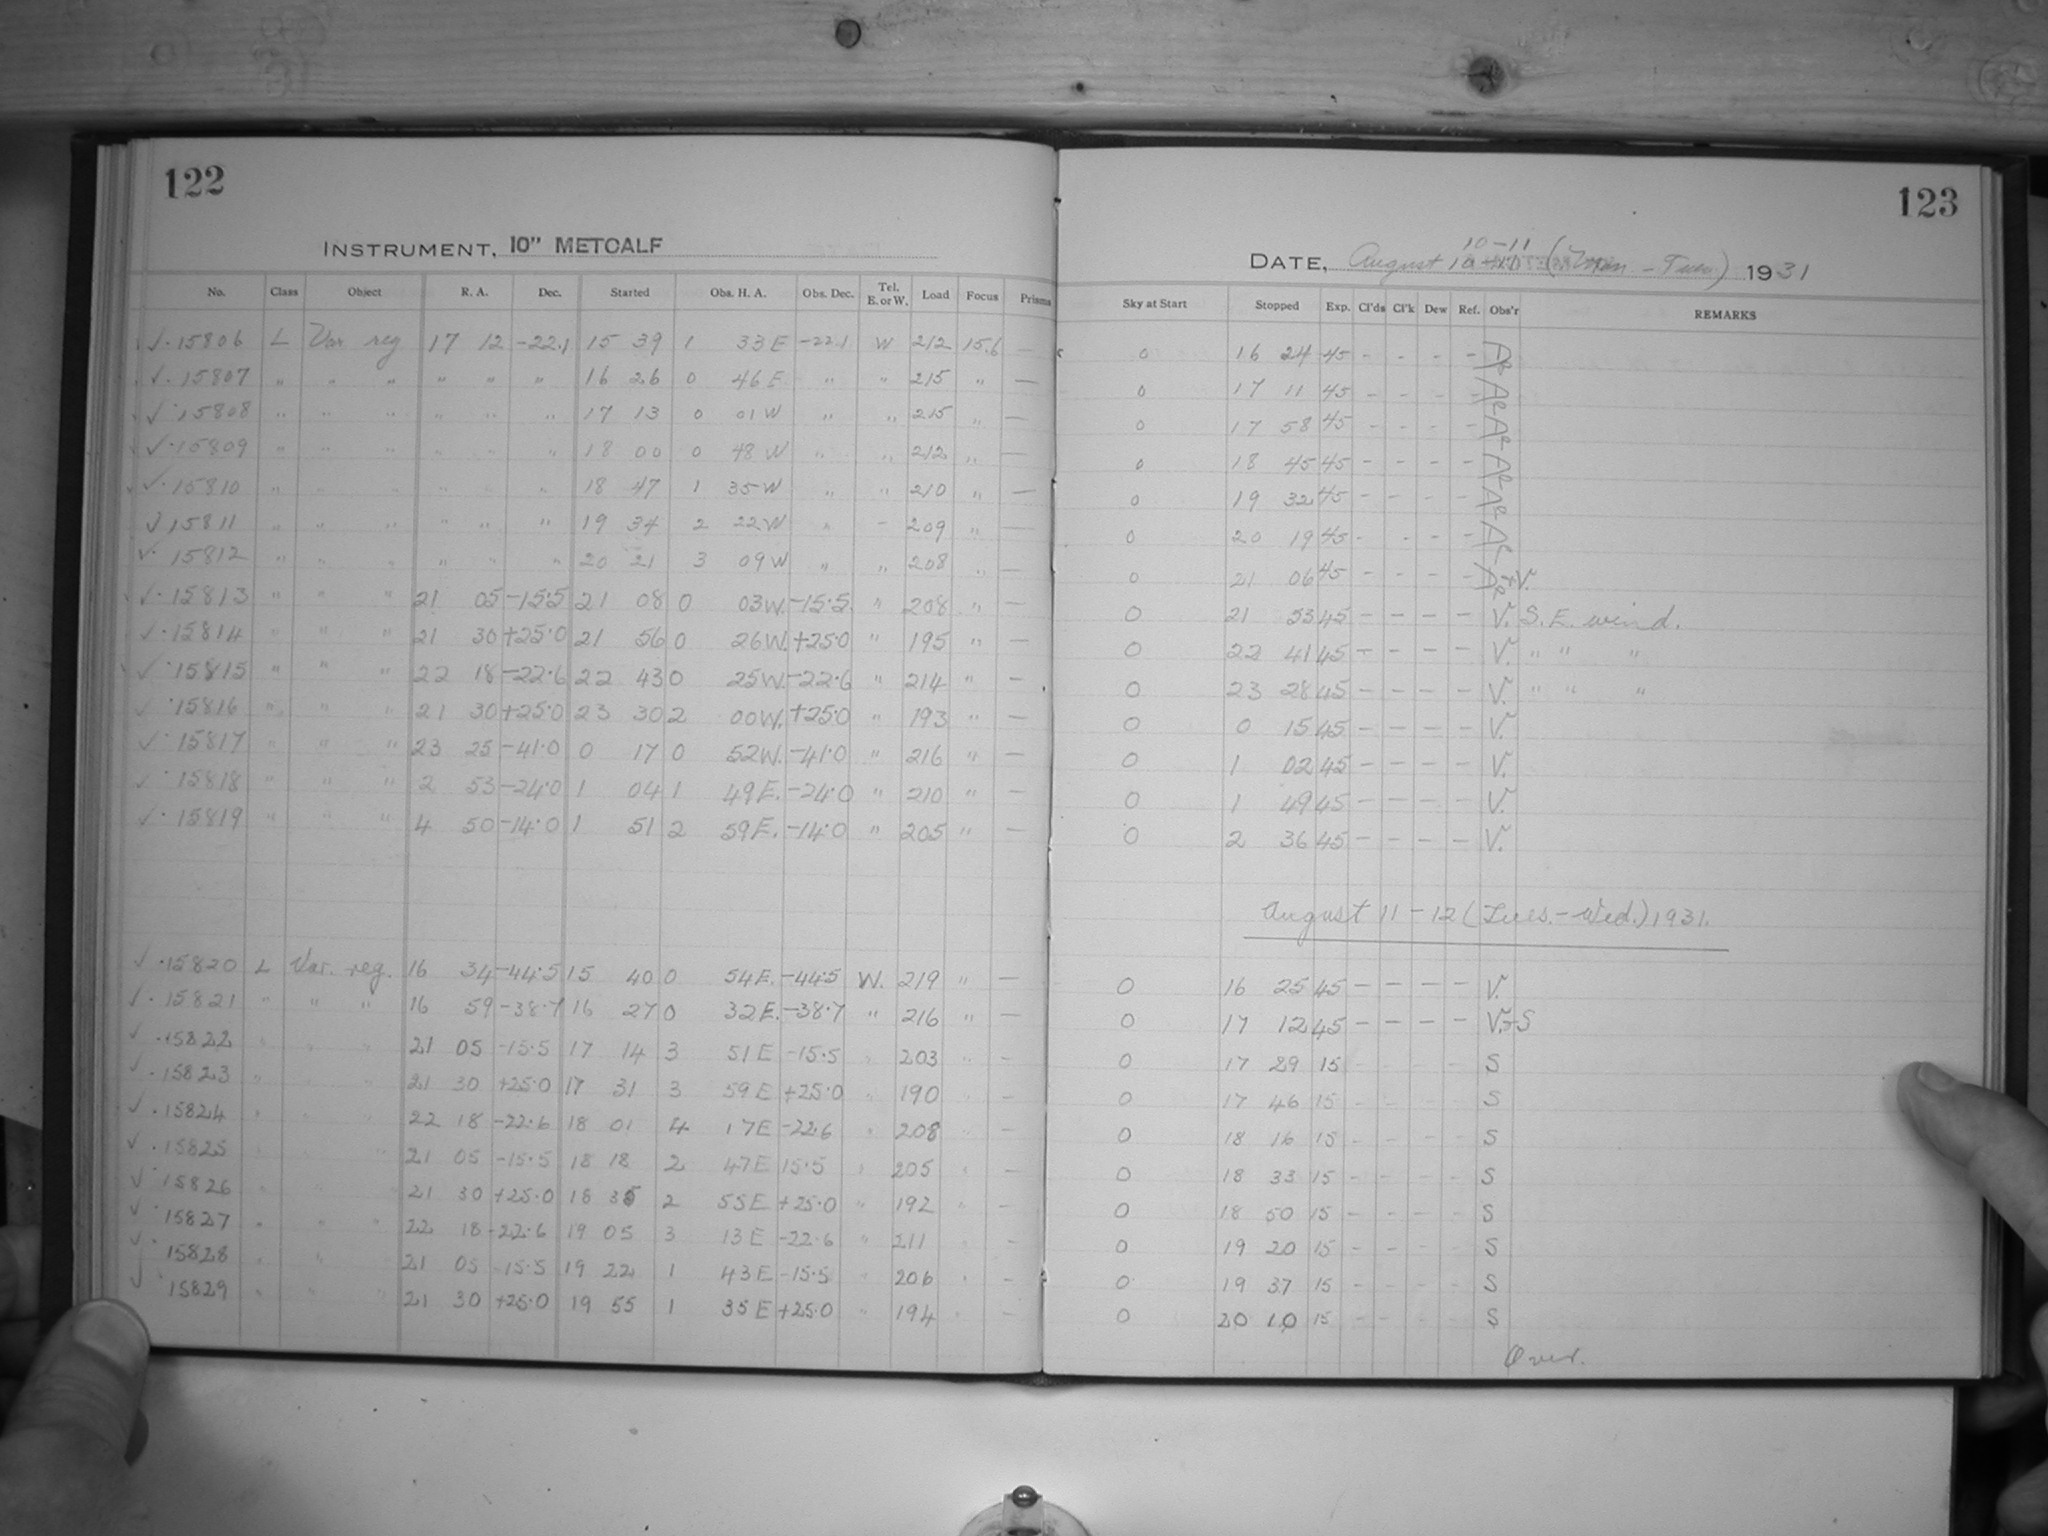 122
INSTRUMENT, 10" METCALF
No. Class Object R. A. Dec. Started Obs. H. A. Obs. Dec. Tel. E. or W. Load Focus Prisms
✓ · 15806 L Var reg 17 12 -22.1 15 39 1 33 E -22.1 W 212 15.6 —
✓ · 15807 " " " " " " 16 26 0 46 E " " 215 " —
✓ · 15808 " " " " " " 17 13 0 01 W " " 215 " —
✓ · 15809 " " " " " " 18 00 0 48 W " " 212 " —
✓ · 15810 " " " " " " 18 47 1 35 W " " 210 " —
✓ 15811 " " " " " " 19 34 2 22 W " " 209 " —
✓ · 15812 " " " " " " 20 21 3 09 W " " 208 " —
✓ · 15813 " " " 21 05 -15.5 21 08 0 03 W. -15.5 " 208 " —
✓ · 15814 " " " 21 30 +25.0 21 56 0 26 W. +25.0 " 195 " —
✓ · 15815 " " " 22 18 -22.6 22 43 0 25 W. -22.6 " 214 " —
✓ · 15816 " " " 21 30 +25.0 23 30 2 00 W. +25.0 " 193 " —
✓ · 15817 " " " 23 25 -41.0 0 17 0 52 W. -41.0 " 216 " —
✓ · 15818 " " " 2 53 -24.0 1 04 1 49 E. -24.0 " 210 " —
✓ · 15819 " " " 4 50 -14.0 1 51 2 59 E. -14.0 " 205 " —
✓ · 15820 L Var. reg. 16 34 -44.5 15 40 0 54 E. -44.5 W. 219 " —
✓ · 15821 " " " 16 59 -38.7 16 27 0 32 E. -38.7 " 216 " —
✓ · 15822 " " " 21 05 -15.5 17 14 3 51 E -15.5 " 203 " —
✓ · 15823 " " " 21 30 +25.0 17 31 3 59 E +25.0 " 190 " —
✓ · 15824 " " " 22 18 -22.6 18 01 4 17 E -22.6 " 208 " —
✓ · 15825 " " " 21 05 -15.5 18 18 2 47 E 15.5 " 205 " —
✓ · 15826 " " " 21 30 +25.0 18 35 2 55 E +25.0 " 192 " —
✓ · 15827 " " " 22 18 -22.6 19 05 3 13 E -22.6 " 211 " —
✓ · 15828 " " " 21 05 -15.5 19 22 1 43 E -15.5 " 206 " —
✓ 15829 " " " 21 30 +25.0 19 55 1 35 E +25.0 " 194 " —
123
10-11
DATE, August (Mon - Tues) 1931
Sky at Start Stopped Exp. Cl'ds Cl'k Dew Ref. Obs'r REMARKS
0 16 24 45 - - - -
0 17 11 45 - - - -
0 17 58 45 - - - -
0 18 45 45 - - - -
0 19 32 45 - - - -
0 20 19 45 - - - -
0 21 06 45 - - - - +V.
0 21 53 45 - - - - V. S. E. wind.
0 22 41 45 - - - - V. " " "
0 23 28 45 - - - - V. " " "
0 0 15 45 - - - - V.
0 1 02 45 - - - - V.
0 1 49 45 - - - - V.
0 2 36 45 - - - - V.
August 11 - 12 (Tues. - Wed.) 1931.
0 16 25 45 - - - - V.
0 17 12 45 - - - - V.+S
0 17 29 15 - - - - S
0 17 46 15 - - - - S
0 18 16 15 - - - - S
0 18 33 15 - - - - S
0 18 50 15 - - - - S
0 19 20 15 - - - - S
0 19 37 15 - - - - S
0 20 10 15 - - - - S
Over.